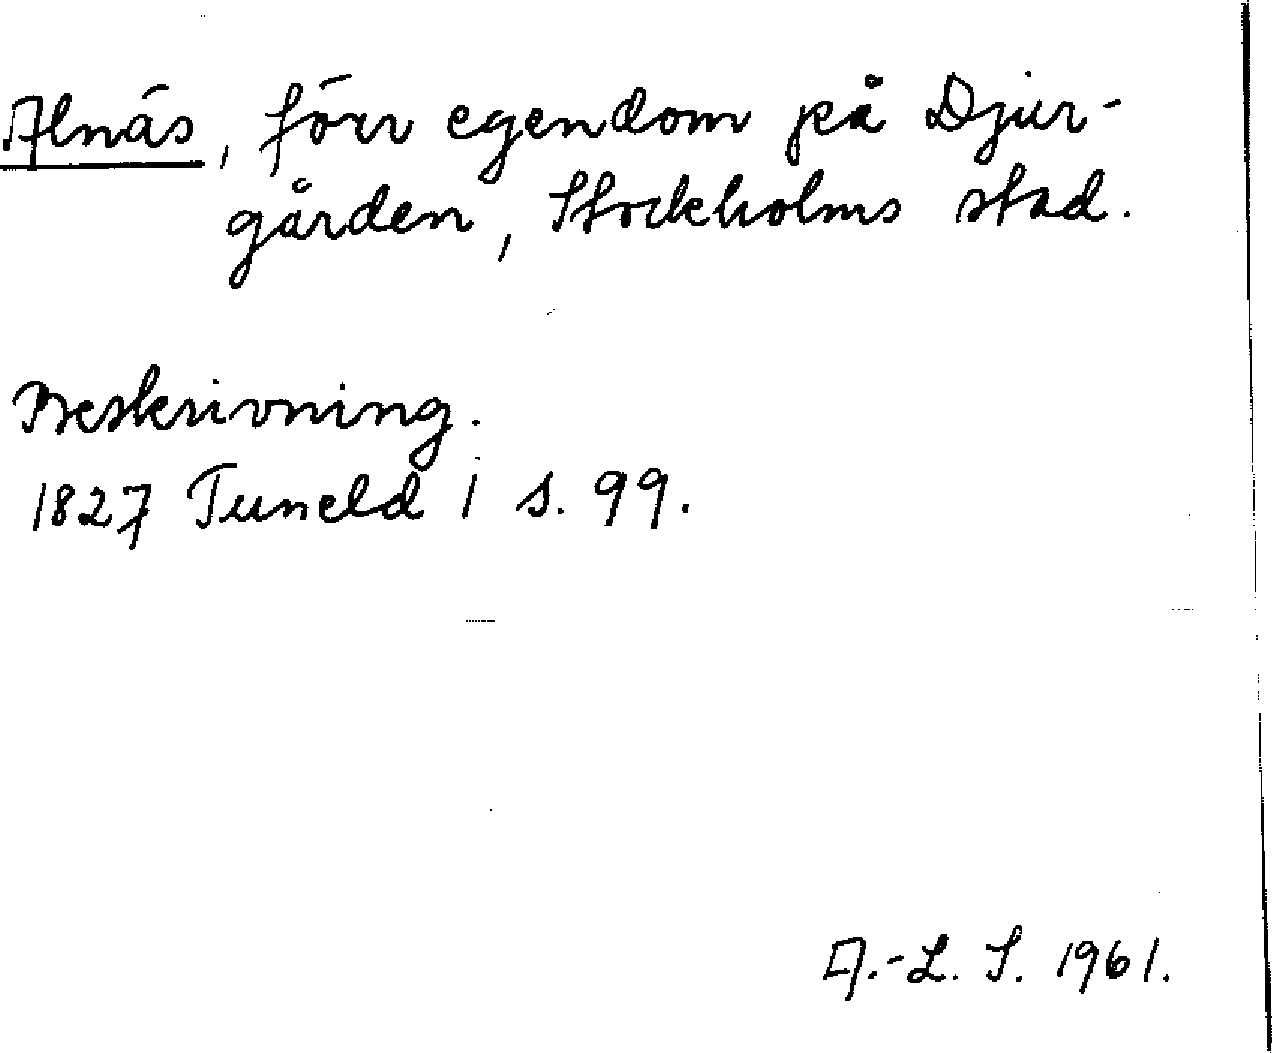 Alnäs, förr egendom på Djur-
gården, Stockholms stad.
Beskrivning.
1827 Tuneld i s. 99.
A.-L. S. 1961.